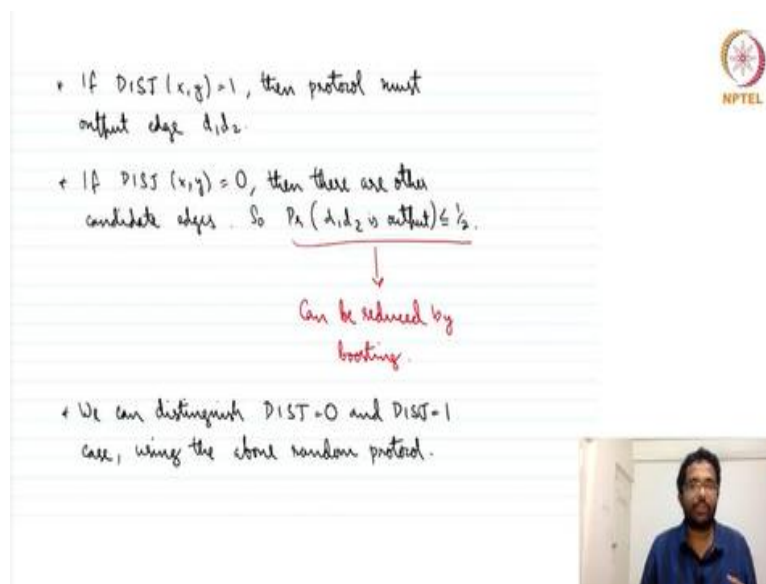 * If DISJ (x,y) = 1, then protocol must
output edge d₁d₂.
* If DISJ (x,y) = 0, then there are other
candidate edges. So Pr (d₁d₂ is output) ≤ ½.
Can be reduced by
boosting.
* We can distinguish DISJ=0 and DISJ=1
case, using the above random protocol.
NPTEL